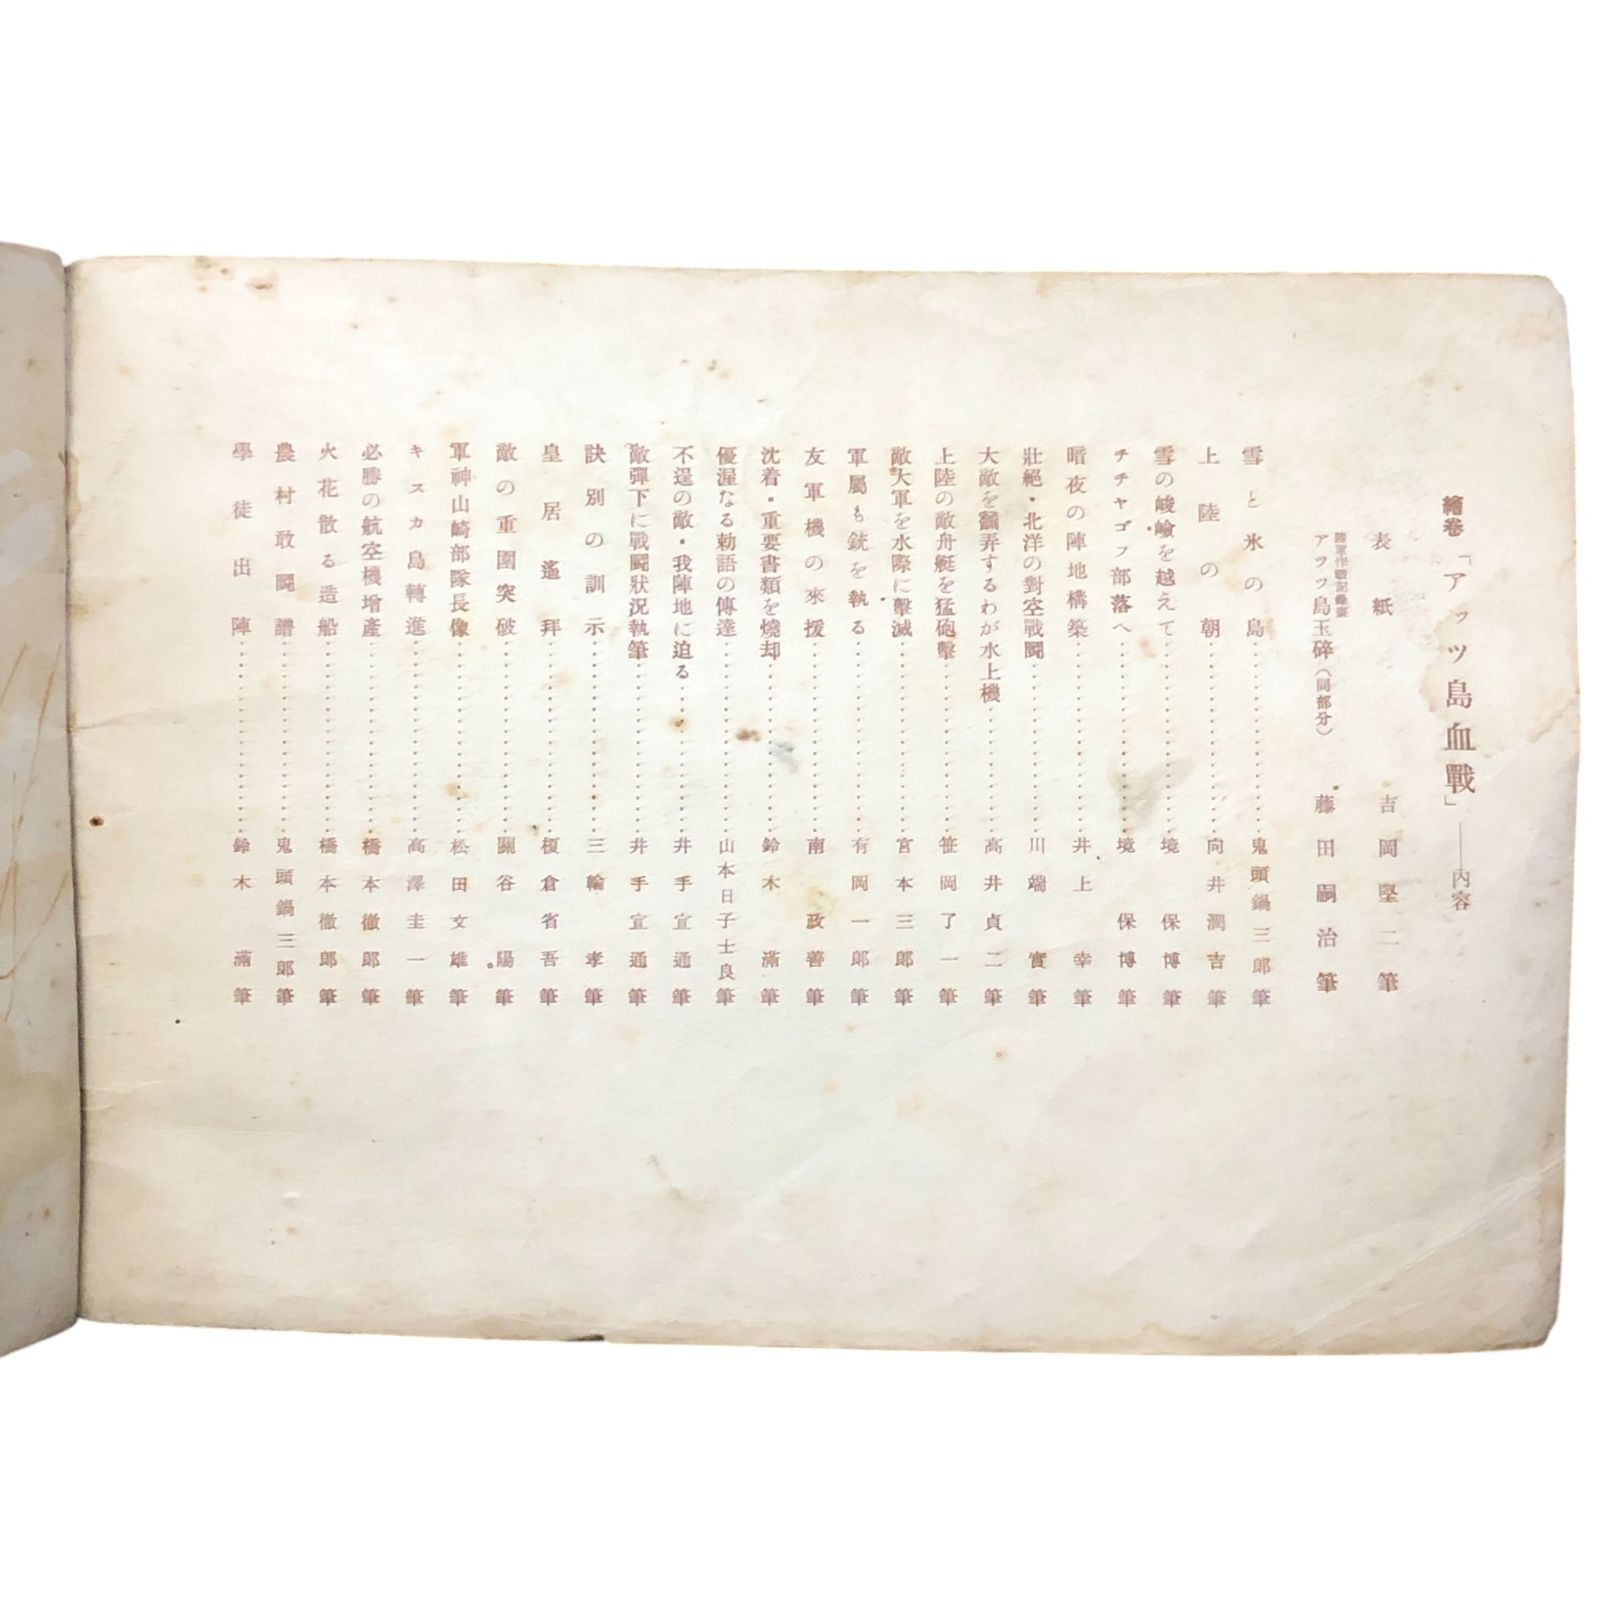 繪卷「アッツ島血戰」——內容
表紙 吉岡堅二筆
陸軍作戰記錄畫
アッツ島玉碎(同部分) 藤田嗣治筆
雪と氷の島……………鬼頭鍋三郎筆
上陸の朝……………向井潤吉筆
雪の峻嶮を越えて……………境保博筆
チチヤゴフ部落へ……………境保博筆
暗夜の陣地構築……………井上幸筆
壯絕・北洋の對空戰鬪……………川端實筆
大敵を飜弄するわが水上機……………高井貞二筆
上陸の敵舟艇を猛砲擊……………笹岡了一筆
敵大軍を水際に擊滅……………宮本三郎筆
軍屬も銃を執る……………有岡一郎筆
友軍機の來援……………南政善筆
沈着・重要書類を燒却……………鈴木滿筆
優渥なる勅語の傳達……………山本日子士良筆
不逞の敵・我陣地に迫る……………井手宣通筆
敵彈下に戰鬪狀況執筆……………井手宣通筆
訣別の訓示……………三輪孝筆
皇居遙拜……………榎倉省吾筆
敵の重圍突破……………關谷陽筆
軍神山崎部隊長像……………松田文雄筆
キスカ島轉進……………高澤圭一筆
必勝の航空機增產……………橋本徹郎筆
火花散る造船……………橋本徹郎筆
農村敢鬪譜……………鬼頭鍋三郎筆
學徒出陣……………鈴木滿筆